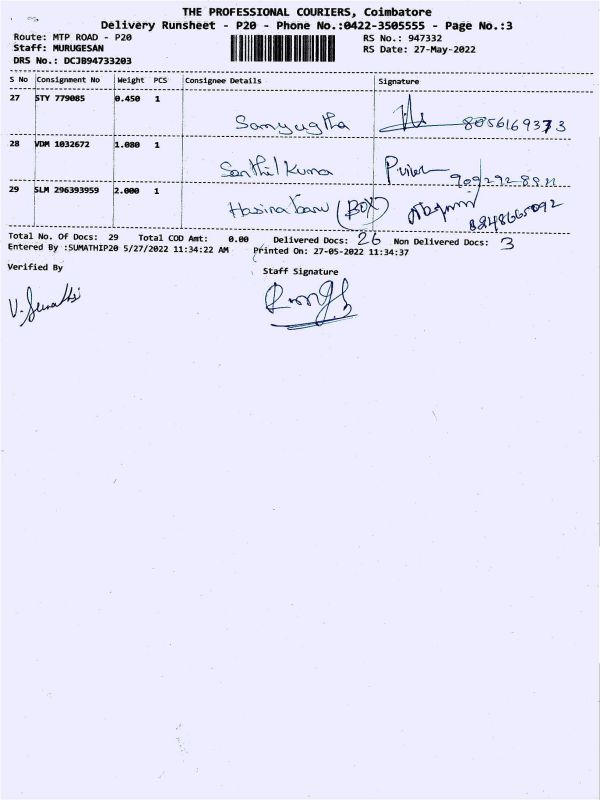 THE PROFESSIONAL COURIERS, Coimbatore
Delivery Runsheet - P20 - Phone No.:0422-3505555 - Page No.:3
Route: MTP ROAD - P20
RS No.: 947332
Staff: MURUGESAN
RS Date: 27-May-2022
DRS No.: DCJB94733203
S No Consignment No Weight PCS Consignee Details Signature
27 STY 779085 0.450 1
Samyugtha 8056169373
28 VDM 1032672 1.080 1
Senthil Kumar
29 SLM 296393959 2.000 1
Hasina banu (BOX) 8848665092
Total No. Of Docs: 29 Total COD Amt: 0.00 Delivered Docs: 26 Non Delivered Docs: 3
Entered By :SUMATHIP20 5/27/2022 11:34:22 AM Printed On: 27-05-2022 11:34:37
Verified By Staff Signature
V. Sumathi